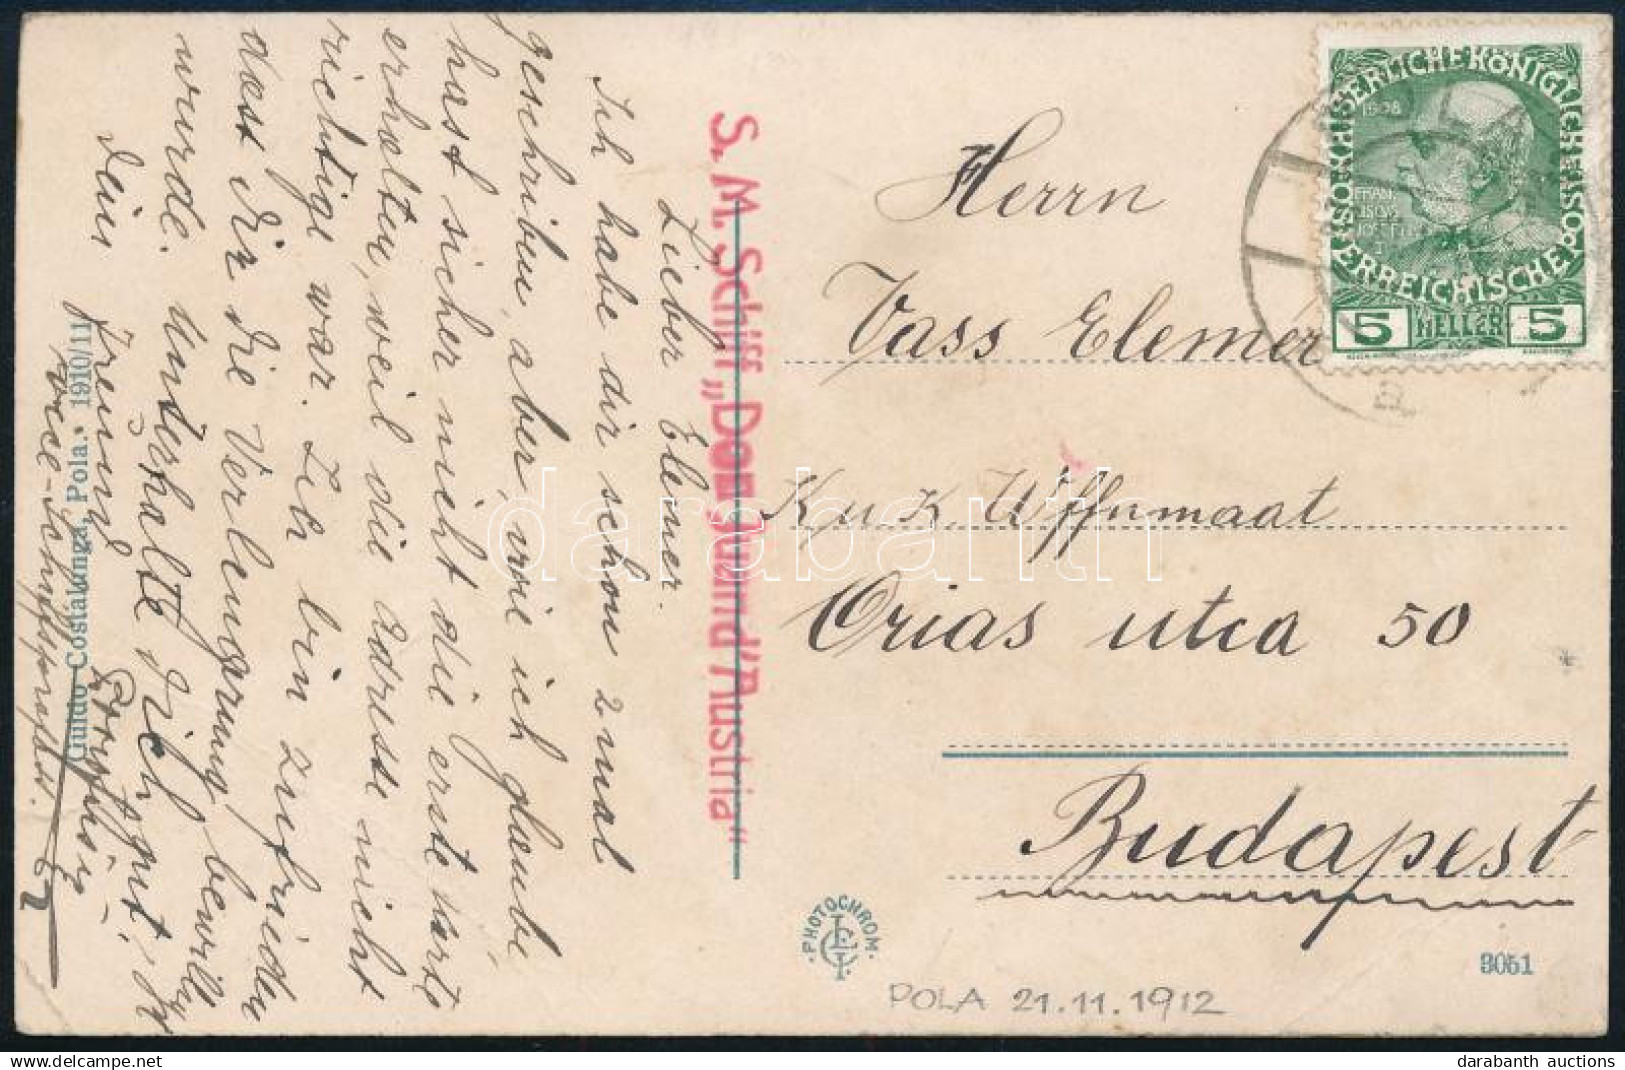 Lieber Elemer.
Ich habe dir schon 2 mal
geschriben, aber, wie ich glaube,
hast sicher nicht die erste karte
erhalten, weil die Adresse nicht
richtige war. Ich bin zufrieden
dass dir die Verlengerung bewilligt
wurde. Unterhalte dich gut,
dein Freund
Guido Costalunga, Pola. 1910/11
S. M. Schiff „Don Juan d'Austria"
Herrn
Vass Elemer
K u. K.
Orias utca 50
Budapest
KAISERLICHE KÖNIGLICHE
ÖSTERREICHISCHE
1908
FRAN
CISCVS
JOSEF
I
5 HELLER 5
PHOTOCHROM
3051
POLA 21.11.1912
darabanth
darabanth auctions